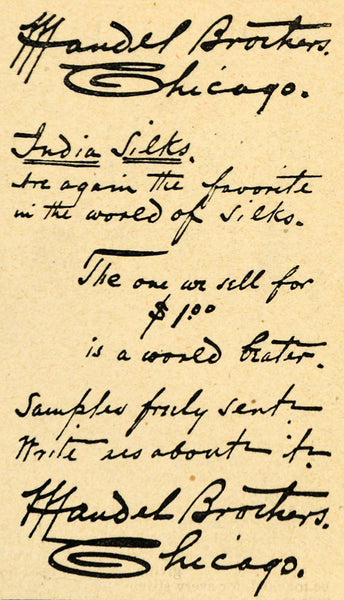 Mandel Brothers.
Chicago.
India Silks.
Are again the favorite
in the world of silks.
The one we sell for
$1.00
is a world beater.
Samples freely sent
Write us about it.
Mandel Brothers.
Chicago.